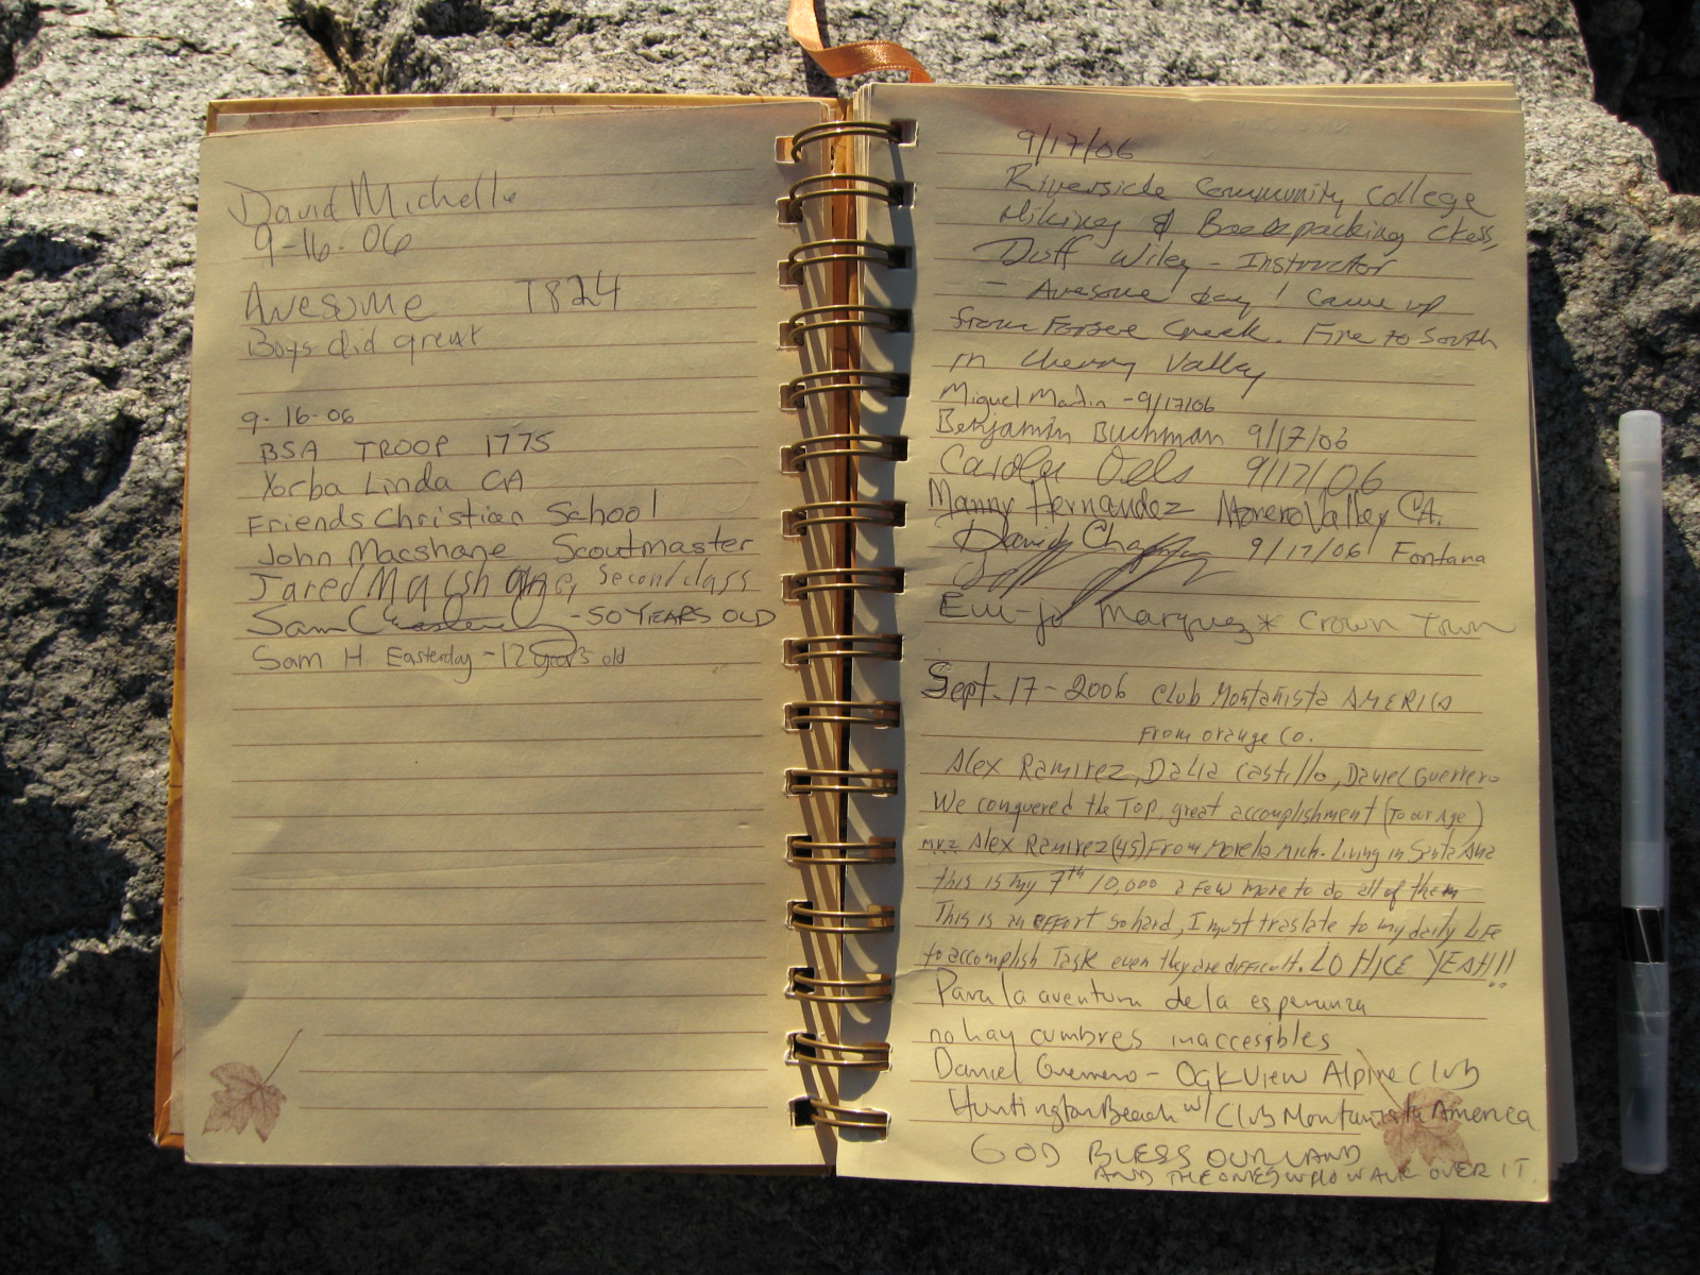 David Michelle
9-16-06
Awesome T824
Boys did great
9-16-06
BSA TROOP 1775
Yorba Linda CA
Friends Christian School
John Macshane Scoutmaster
Jared Macshane, second class
Sam - 50 YEARS OLD
Sam H Easterday - 12 years old
9/17/06
Riverside Community College
Hiking & Backpacking Class,
Duff Wiley - Instructor
- Awesome day! Came up
from Forsee Creek. Fire to South
in Cherry Valley
Miguel - 9/17/06
Benjamin Buchman 9/17/06
9/17/06
Manny Hernandez Moreno Valley CA.
David 9/17/06 Fontana
Marquez * Crown Town
Sept. 17 - 2006 Club Montañista AMERICA
From orange Co.
Alex Ramirez, Dalia Castillo, Daniel Guerrero
We conquered the Top, great accomplishment (To our Age)
Alex Ramirez (45) From Morelia Mich. Living in Santa Ana
this is my 7th 10,000 a few more to do all of them
This is an effort so hard, I must traslate to my daily life
to accomplish Task even they are difficult. LO HICE YEAH!!
Para la aventura de la esperanza
no hay cumbres inaccesibles
Daniel Guerrero - Oak View Alpine Club
Huntington Beach w/ Club Montañista America
GOD BLESS OUR LAND
AND THE ONES WHO WALK OVER IT.